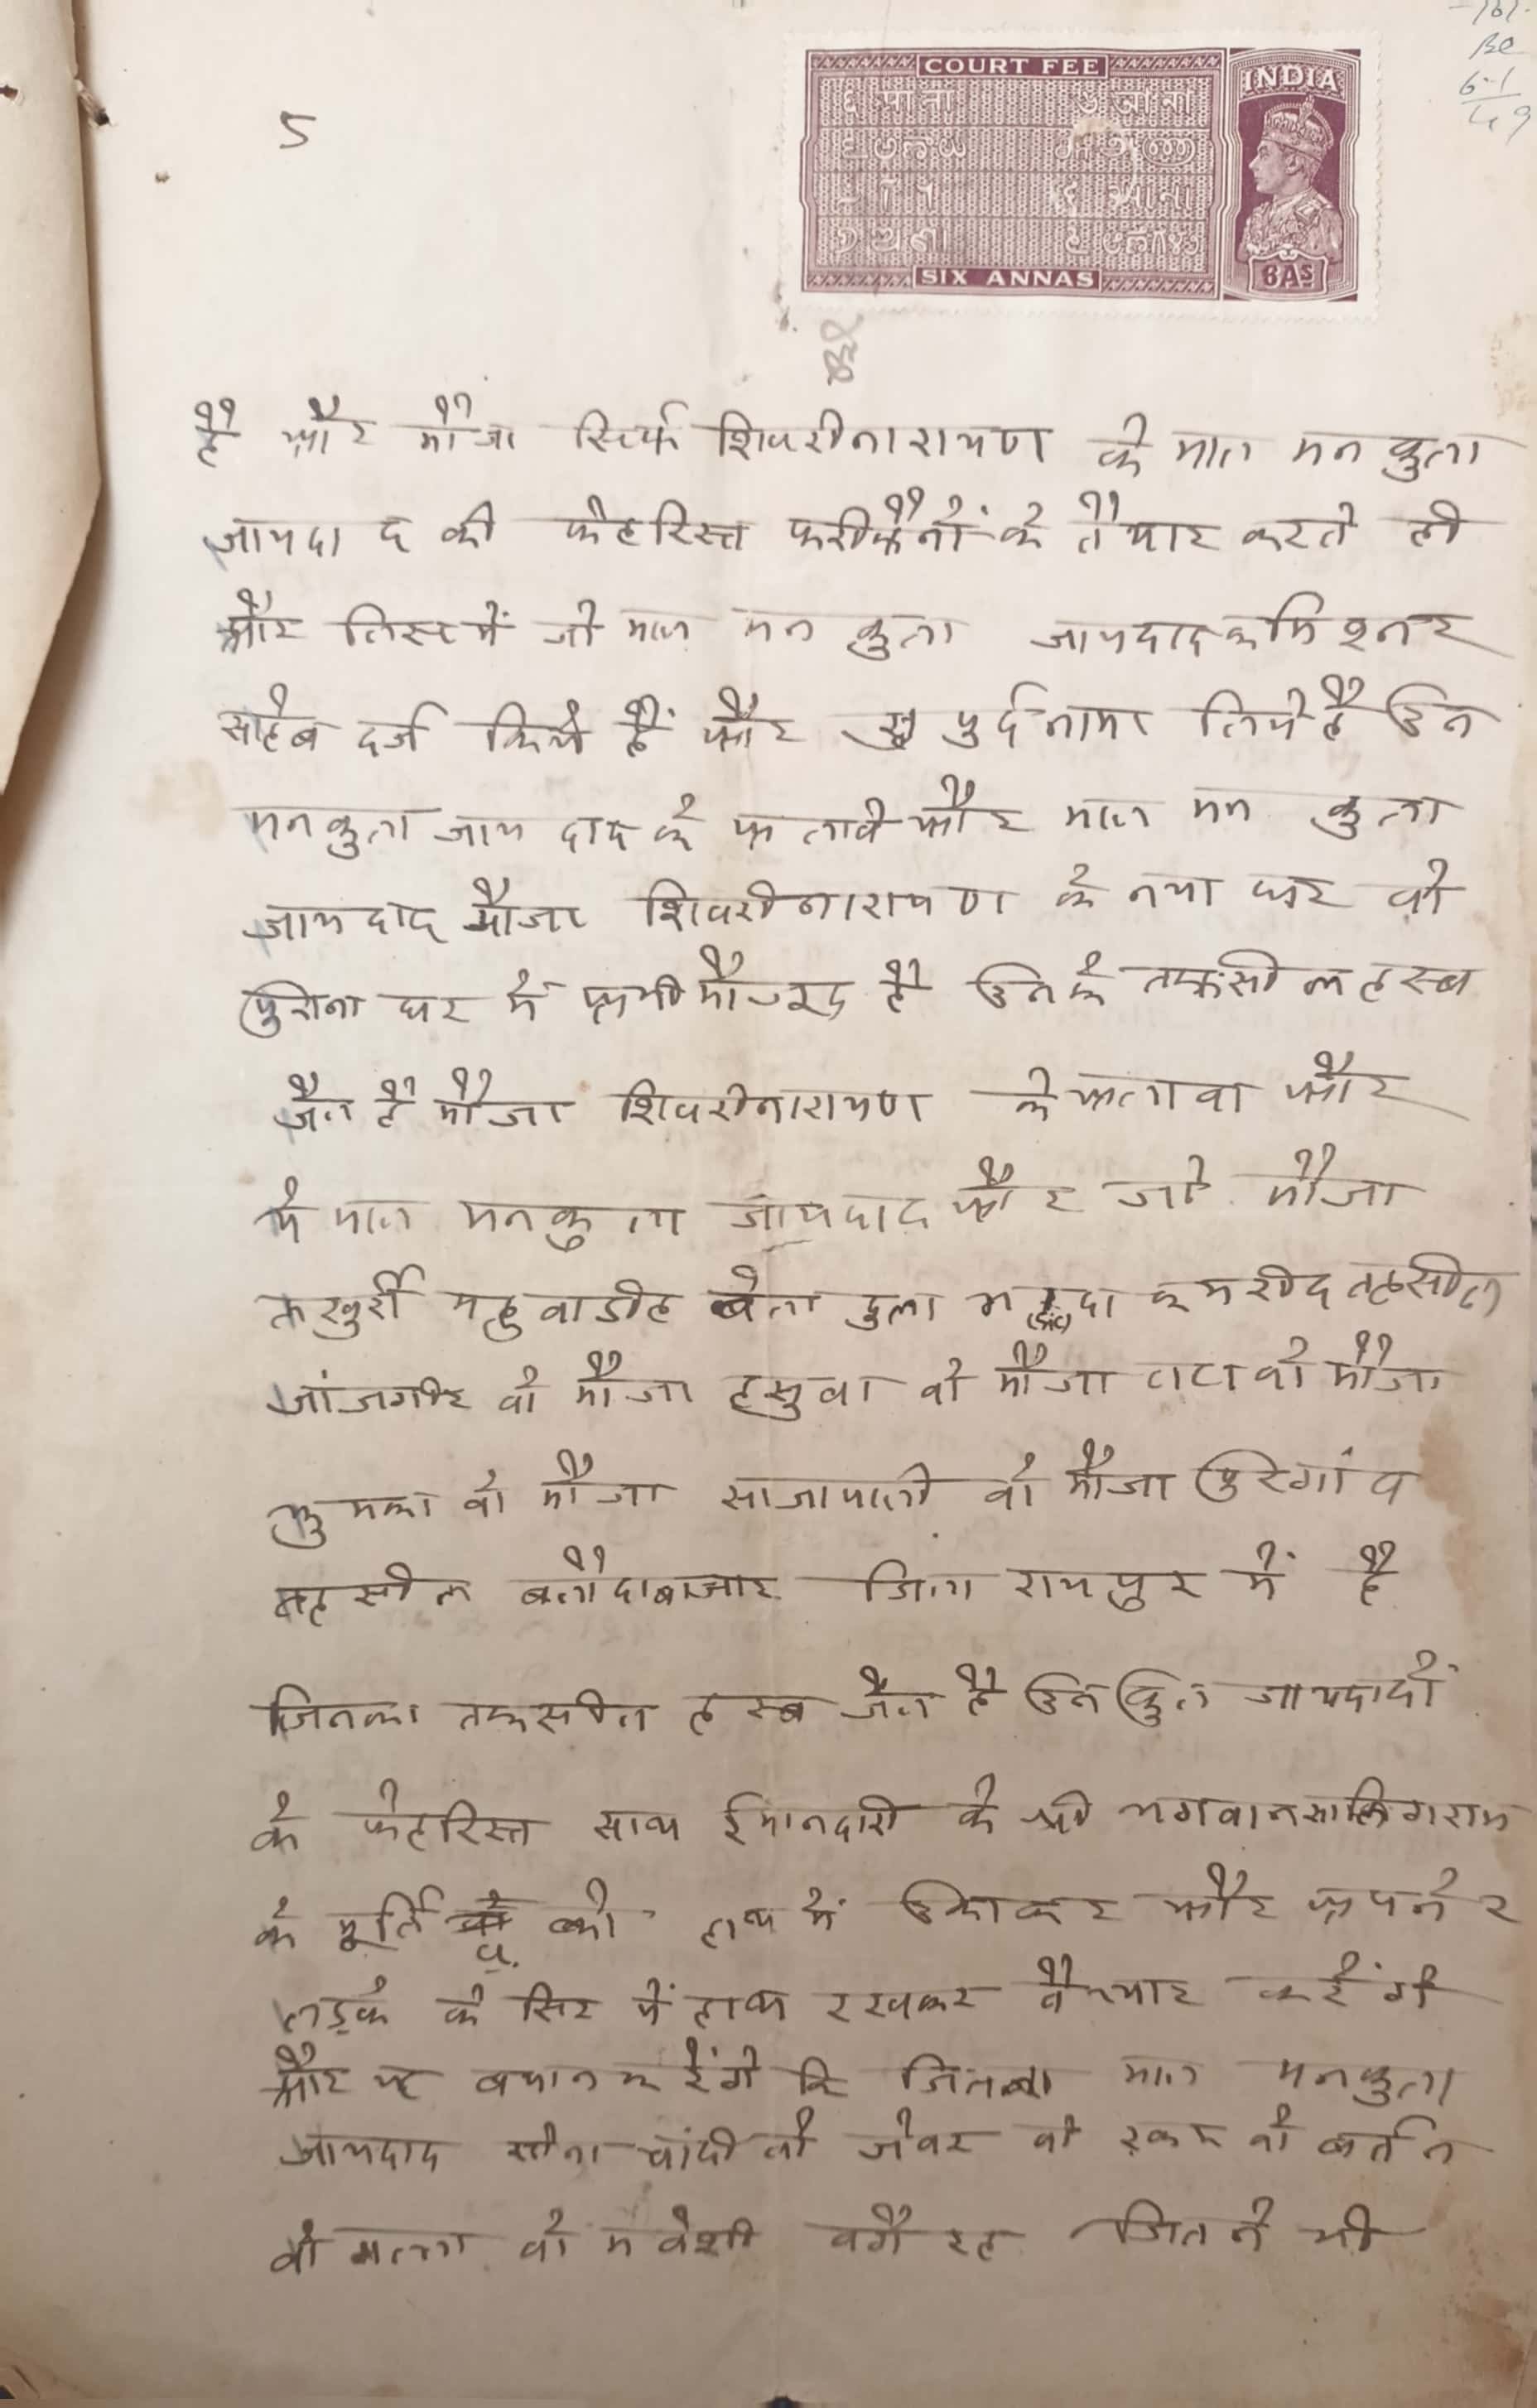 5
COURT FEE
INDIA
६ आना
SIX ANNAS
6 AS
है और मौजा सिर्फ शिवरीनारायण के माल मनकुला
जायदाद की फेहरिस्त फरीकैनों के तैयार करते ली
और लिस्ट में जो माल मनकुला जायदाद कमिश्नर
साहेब दर्ज किये हैं और सुपुर्दनामा लिये है उन
मनकुला जायदाद के अलावे और माल मनकुला
जायदाद मौजा शिवरीनारायण के नया घर वो
पुराना घर में अभी मौजूद है उनके तफसील हस्ब
जैल है मौजा शिवरीनारायण के अलावा और
में माल मनकुला जायदाद और जो मौजा
महुवाडीह तहसील
जांजगीर वो मौजा हसुवा वो मौजा टाटा वो मौजा
वो मौजा साजापाली वो मौजा पुरगांव
तहसील बलौदाबाजार जिला रायपुर में है
जिनका तफसील हस्ब जैल है उन कुल जायदादों
के फेहरिस्त साथ ईमानदारी के श्री भगवान सालिगराम
के मूर्ति को हाथ में उठाकर और अपने २
लड़के के सिर में हाथ रखकर तैय्यार करेंगे
और यह बयान करेंगे कि जितना माल मनकुला
जायदाद सोना चांदी वो जेवर वो रकम वो बर्तन
वो गल्ला वो मवेशी वगैरह जितने भी